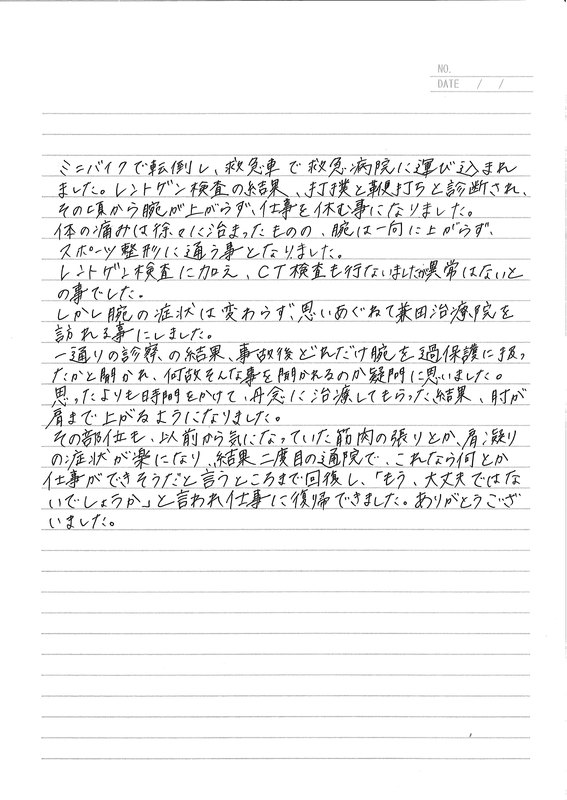 NO.
DATE / /
ミニバイクで転倒し、救急車で救急病院に運び込まれ
ました。レントゲン検査の結果、打撲と鞭打ちと診断され、
その頃から腕が上がらず、仕事を休む事になりました。
体の痛みは徐々に治まったものの、腕は一向に上がらず、
スポーツ整形に通う事となりました。
レントゲン検査に加え、CT検査も行ないましたが異常はないと
の事でした。
しかし腕の症状は変わらず、思いあぐねて兼田治療院を
訪れる事にしました。
一通りの診察の結果、事故後どれだけ腕を過保護に扱っ
たかと聞かれ、何故そんな事を聞かれるのか疑問に思いました。
思ったよりも時間をかけて、丹念に治療してもらった結果、肘が
肩まで上がるようになりました。
その部位も、以前から気になっていた筋肉の張りとか、肩凝り
の症状が楽になり、結果二度目の通院で、これなら何とか
仕事ができそうだと言うところまで回復し、「もう、大丈夫ではな
いでしょうか」と言われ仕事に復帰できました。ありがとうござ
いました。